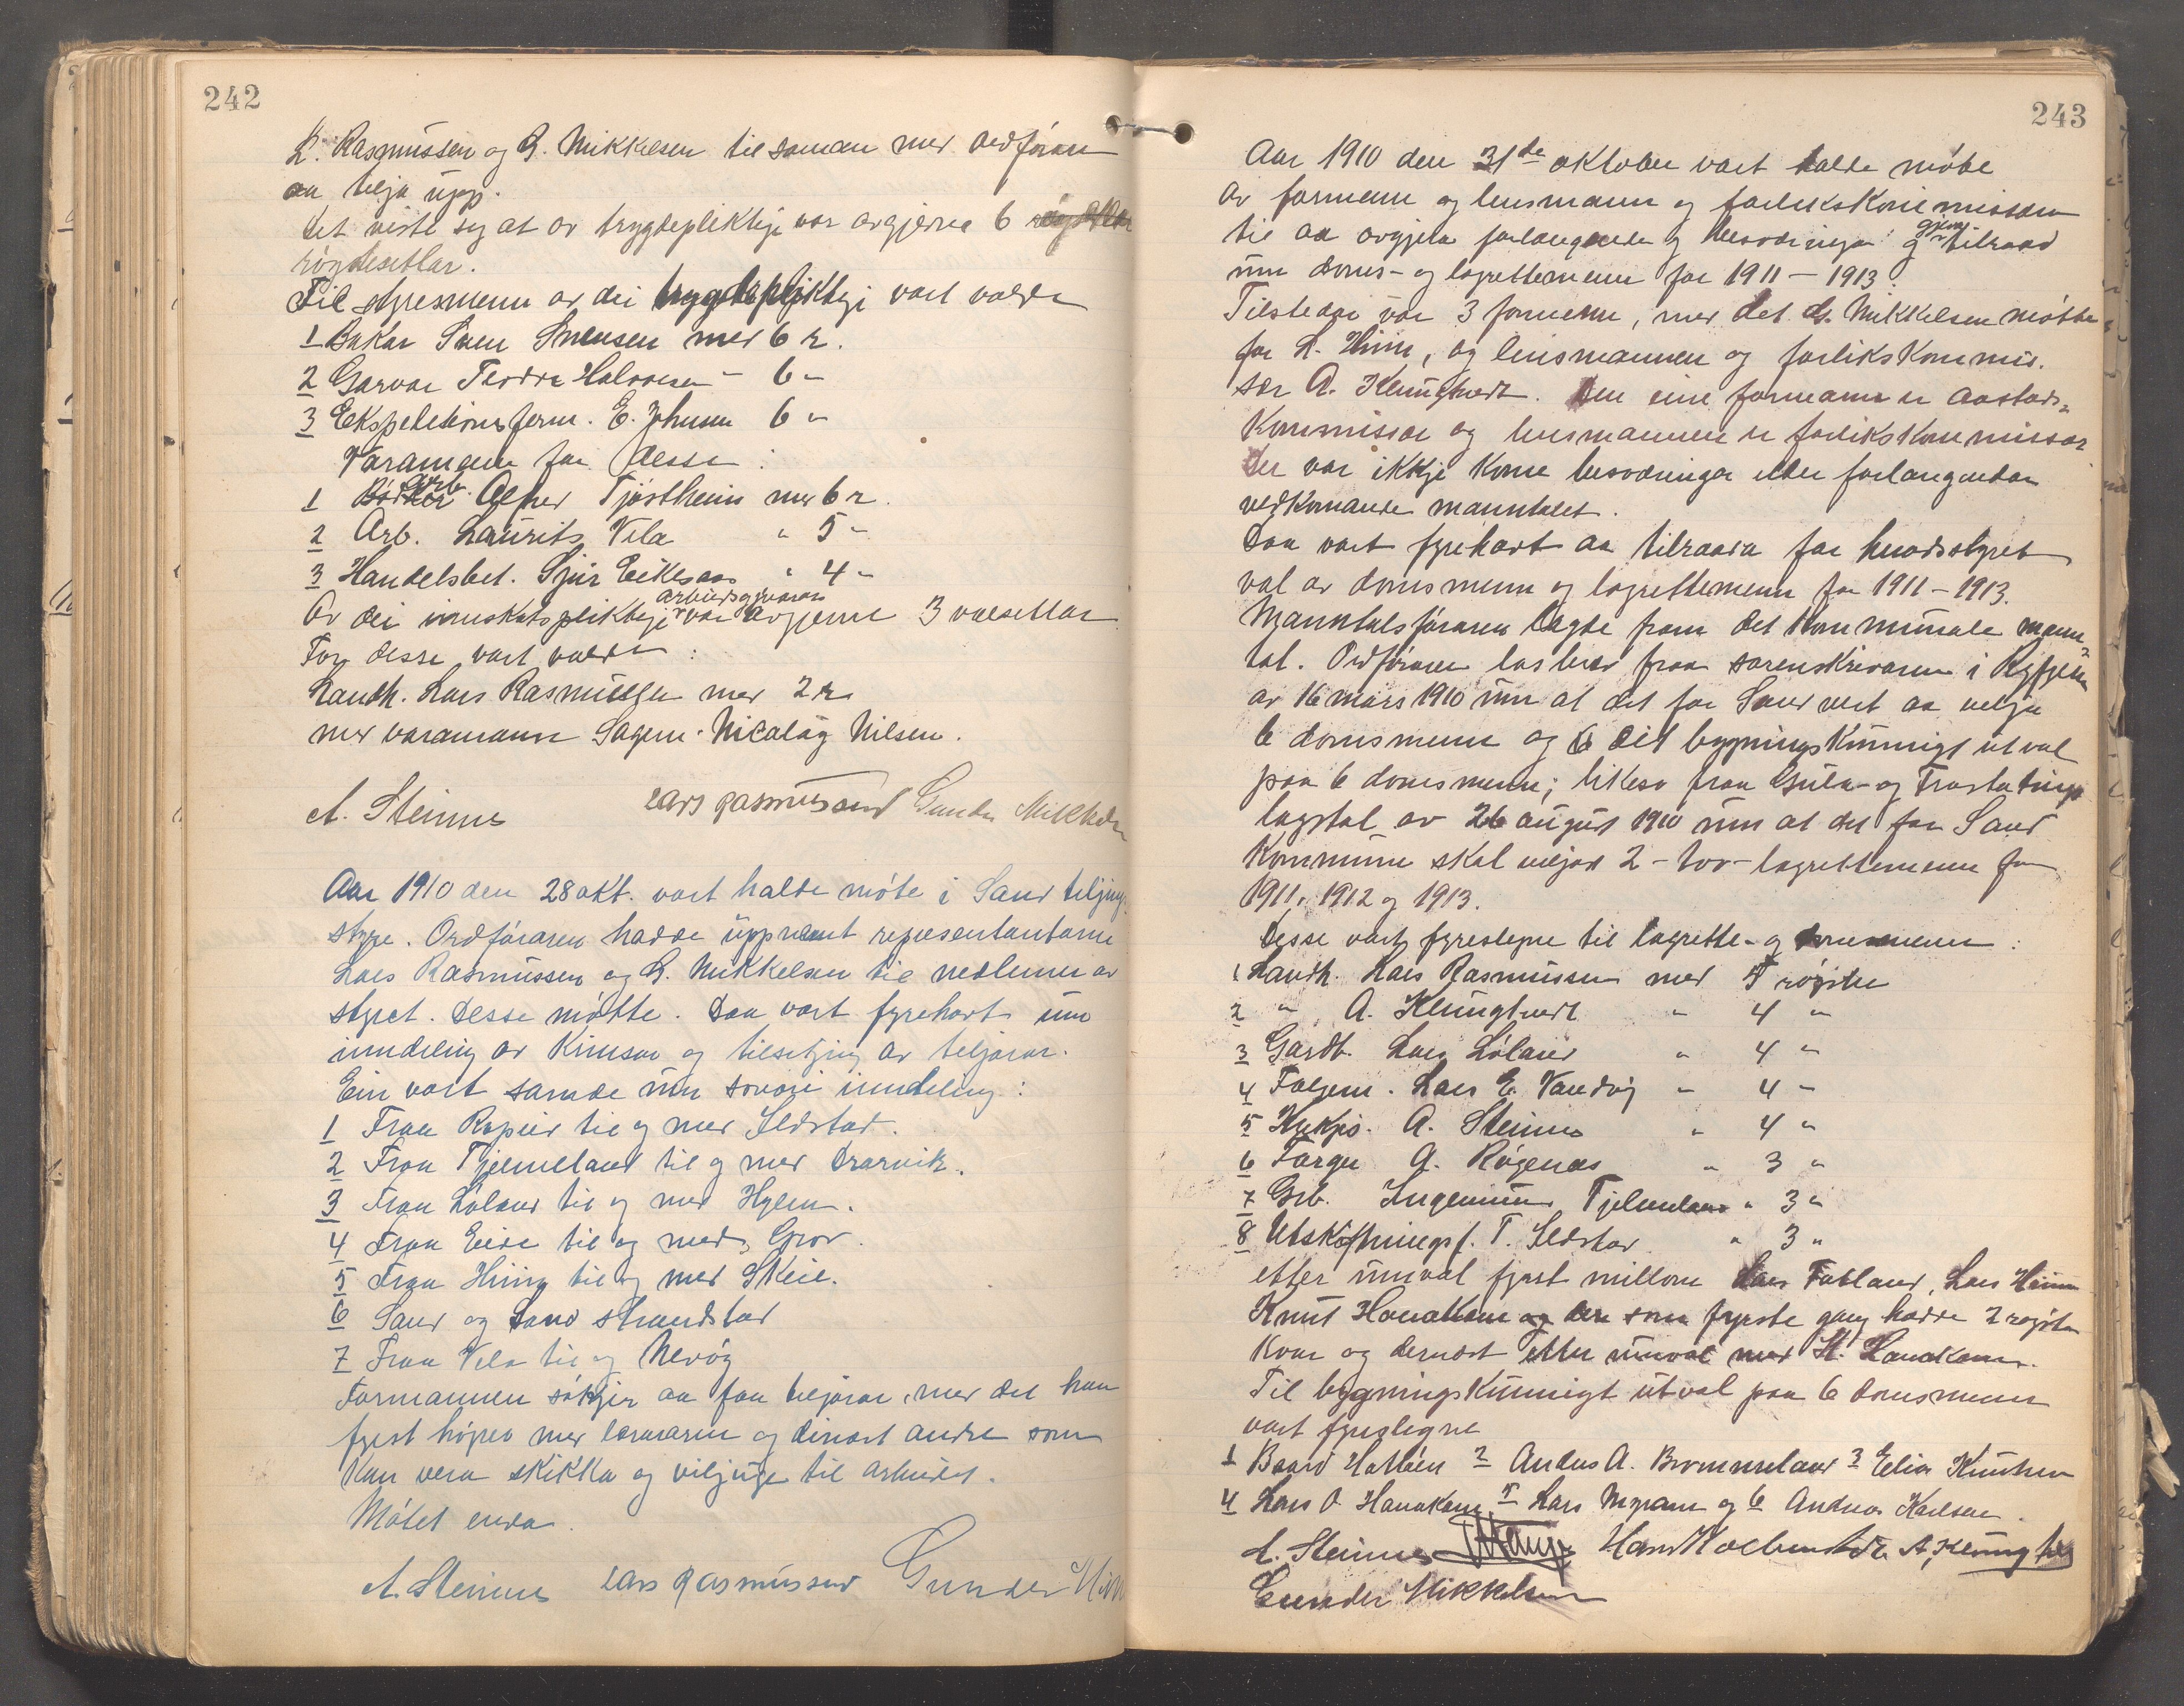 242
L. Rasmussen og G. Mikkelsen til saman med ordføraren
aa telja upp.
Det viste seg at av trygdepliktige var avgjevne 6
røystesetlar.
Til styresmenn av dei trygdepliktige vart valde
1 Bakar Sven Svensen med 6 r.
2 Garvar Tordve Halvorsen - 6 -
3 Ekspeditionsform. E. Johnsen 6 -
Varamenn for desse:
1 Arb. Alfred Tjøstheim med 6 r.
2 Arb. Laurits Vela " 5 -
3 Handelsbet. Sjur Eikesaas " 4 -
Av dei innskotspliktige arbeidsgjevarar var avgjevne 3 valsetlar
For desse vart valde:
Landh. Lars Rasmussen med 2 r.
med varamann Sagem. Nicolay Nilsen.
A. Steinnes Lars Rasmussen Gunder Mikkelsen
Aar 1910 den 28 okt. vart halde møte i Sand teljings-
styre. Ordføraren hadde uppnemnt representantarne
Lars Rasmussen og G. Mikkelsen til medlemer av
styret. Desse møtte. Daa vart fyrehavt um
inndeling av krinsar og tilsetjing av teljarar.
Ein vart samde um sovori inndeling:
1 Fraa Ropeid til og med Ilstad.
2 Fraa Tjelmeland til og med Drarvik.
3 Fraa Løland til og med Hylen.
4 Fraa Eide til og med Grov.
5 Fraa Hiim til og med Skeie.
6 Sand og Sand strandstad
7 Fraa Vela til og Nevøy
Formannen søkjer aa faa teljarar, med det han
fyrst høyrer med lærararne og dinæst andre som
kan vera skikka og viljuge til arbeidet.
Møtet enda.
A. Steinnes Lars Rasmussen Gunder Mik
243
Aar 1910 den 31te oktober vart halde møte
av formenn og lensmann og forlikskommissær
til aa avgjera forlangender og innvendingar og gjeva tilraad
um doms- og lagrettemenn for 1911 - 1913.
Tilstedar var 3 formenn, med det G. Mikkelsen møtte
for L. Hiim, og lensmannen og forlikskommis-
sær A. Klungtvedt. Den eine formann er aastads-
kommissær og lensmannen er forlikskommissær
Der var ikkje kome innvendingar eller forlangendar
vedkomande manntalet.
Daa vart fyrehavt aa tilraada for heradsstyret
val av domsmenn og lagrettemenn for 1911 - 1913.
Manntalsføraren lagde fram det kommunale mann-
tal. Ordføraren las brev fraa sorenskrivaren i Ryfylke
av 16 mars 1910 um at det for Sand vert aa velja
6 domsmenn og eit bygningskunnigt utval
paa 6 domsmenn; likeso fraa Gula- og Frostatings
lagstol av 26 august 1910 um at det for Sand
kommune skal veljast 2 - tvo - lagrettemenn for
1911, 1912 og 1913.
Desse vart fyreslegne til lagrette- og domsmenn:
1 Landh. Lars Rasmussen med 5 røyster
2 " A. Klungtvedt " 4 "
3 Gardb. Lars Løland " 4 "
4 Lars E. Vandvig " 4 "
5 Kyrkjes. A. Steinnes " 4 "
6 Farger A. Røgenes " 3 "
7 Grb. Ingemund Tjelmeland " 3 "
8 Utskiftningsf. T. Ilstad " 3 "
etter umval fyrst millom Lars Fatland, Lars Hiim
Knut Honakam som fyrste gang hadde 2 røyster
kvar og dernæst etter umval med
Til bygningskunnigt utval paa 6 domsmenn
vart fyreslegne
1 Baard Hatløen 2 Anders A. Brommeland 3 Elias Knutsen
4 Lars O. Havrekam 5 Lars Myrane og 6 Andreas Karlsen.
A. Steinnes A. Klungtvedt
Gunder Mikkelsen